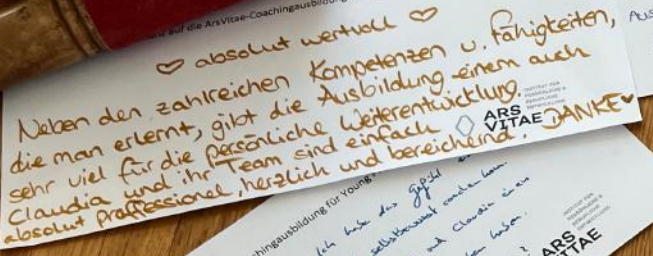 auf die ArsVitae-Coachingausbildung
♡ absolut wertvoll ♡
Neben den zahlreichen Kompetenzen u. Fähigkeiten,
die man erlernt, gibt die Ausbildung einem auch
sehr viel für die persönliche Weiterentwicklung.
Claudia und ihr Team sind einfach
absolut proffessionel, herzlich und bereichernd. DANKE♥
ARS
VITAE
INSTITUT FÜR
PERSÖNLICHE &
BERUFLICHE
ENTWICKLUNG
chingausbildung für Young
Ich habe das Gefühl
selbstbewusst
und Claudia
haben.
INSTITUT FÜR
ARS
VITAE